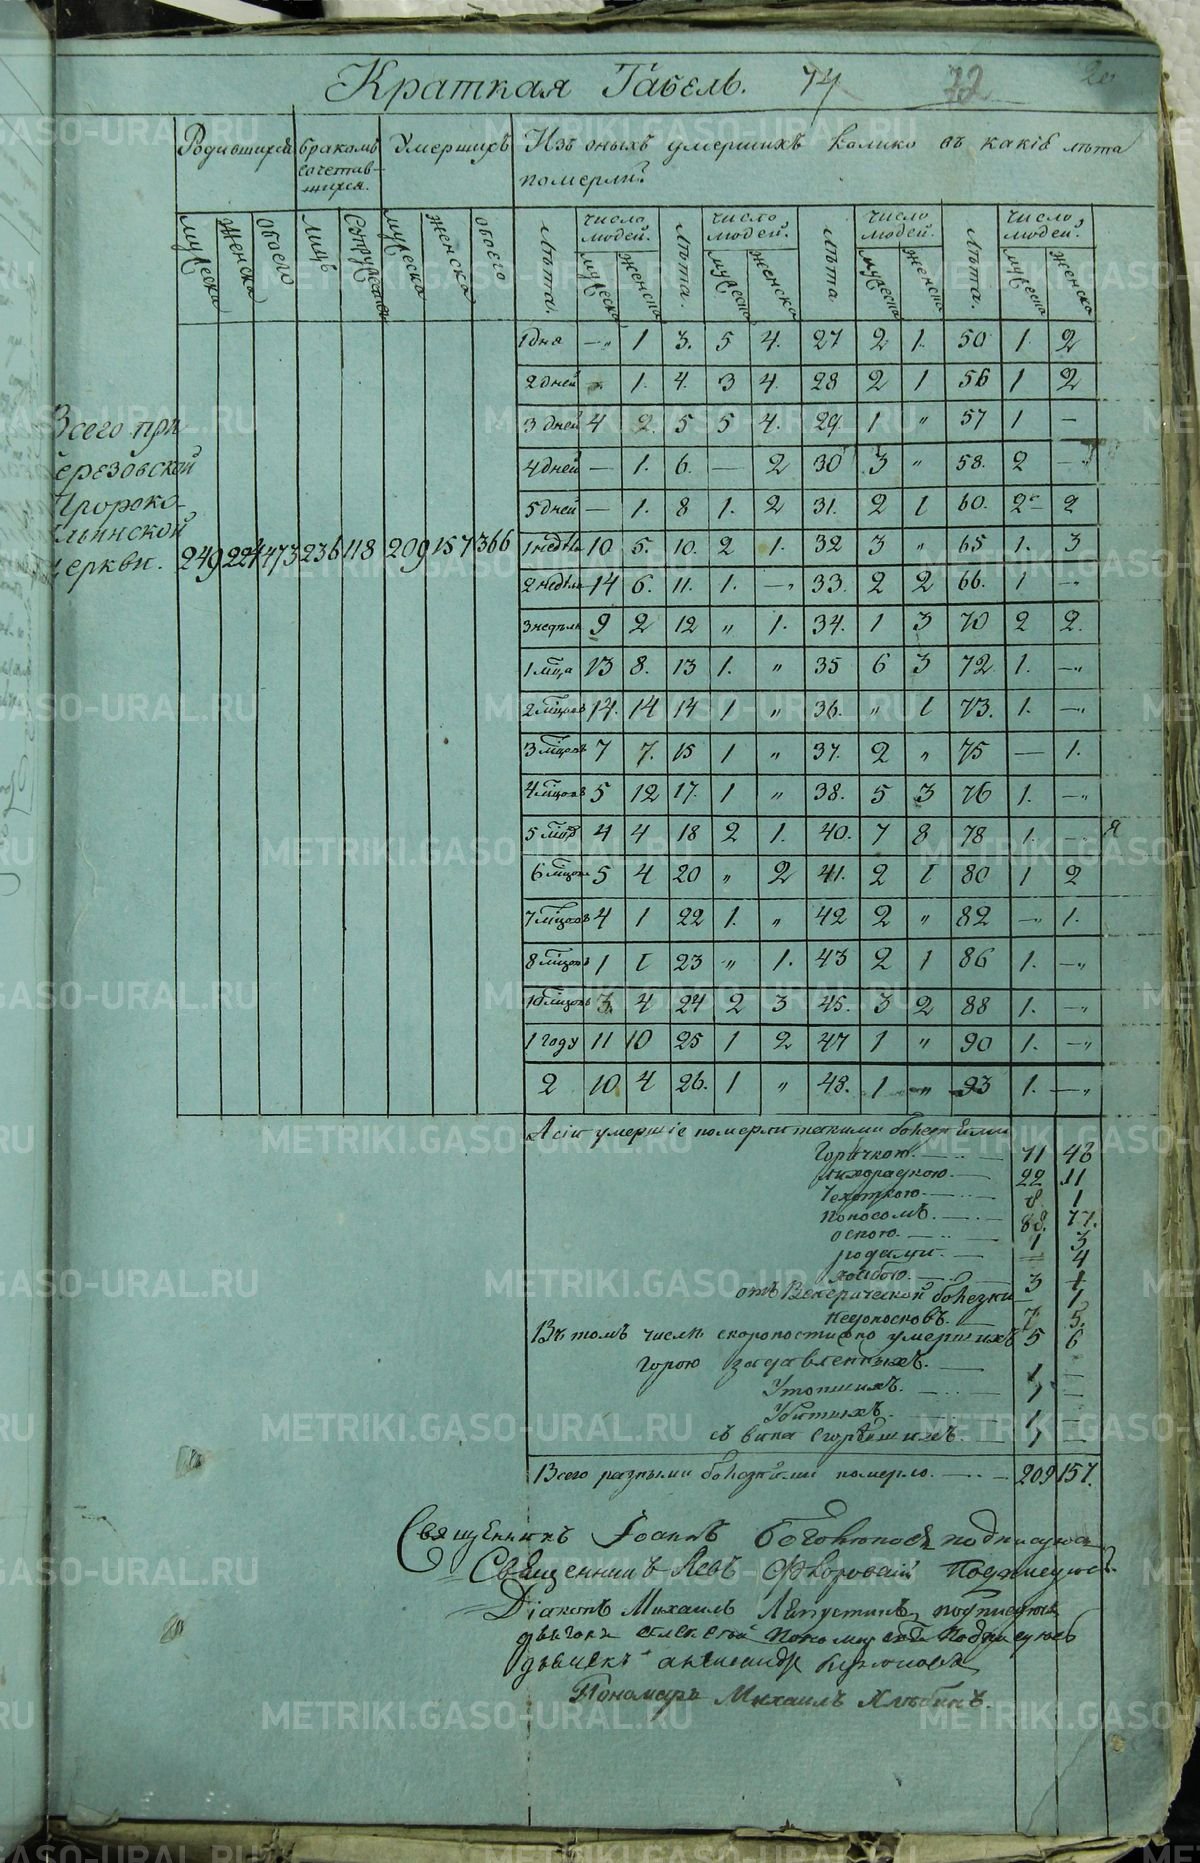 Краткая Табель. 74 72 20
Родившихся бракомъ Умершихъ Изъ оныхъ умершихъ колико въ какiя лѣта
сочетав-
шихся. померли?
мужеска женска обоего лицъ супружествъ мужеска женска обоего лѣта. число людей. мужеска женска лѣта. число людей. мужеска женска лѣта число людей. мужеска женска лѣта. число людей. мужеска женска
Всего при
Березовской
Пророко-
Ильинской
церкви. 249 224 473 236 118 209 157 366
1 дня — 1 3. 5 4. 27 2 1. 50 1. 2
2 дней 1. 4. 3 4. 28 2 1 56 1 2
3 дней 4 2. 5 5 4. 29 1 „ 57 1 —
4 дней — 1. 6. — 2 30 3 „ 58. 2 —
5 дней — 1. 8 1. 2 31. 2 1 60. 2 2
1 недѣль 10 5. 10. 2 1. 32 3 „ 65 1. 3
2 недѣль 14 6. 11. 1. — 33. 2 2 66. 1 —
3 недѣль 9 2 12 „ 1. 34. 1 3 70 2 2.
1 мца 13 8. 13 1. „ 35 6 3 72 1. —
2 мцовъ 14. 14 14 1 „ 36. „ 1 73. 1. —
3 мцовъ 7 7. 15 1 „ 37. 2 „ 75 — 1.
4 мцовъ 5 12 17. 1 „ 38. 5 3 76 1. —
5 мцовъ 4 4 18 2 1. 40. 7 8 78 1. —
6 мцовъ 5 4 20 „ 2 41. 2 1 80 1 2
7 мцовъ 4 1 22 1. „ 42 2 „ 82 — 1.
8 мцовъ 1 1 23 „ 1. 43 2 1 86 1. —
10 мцовъ 3. 4 24 2 3 45. 3 2 88 1. —
1 году 11 10 25 1 2 47 1 „ 90 1. —
2 10 4 26. 1 „ 48. 1 „ 93 1. —
А сiи умершiе померли такими болезньми
Горячкою. 71 48
Лихорадкою. 22 11
Чехоткою 8. 1
Поносомъ. 88. 77.
оспою. 1 3
родами. — 4
3 1
отъ Венерической болезни — 1
7. 5.
Въ томъ числѣ скоропостижно умершихъ 5 6
горою задавленныхъ. 1 —
Утопшихъ. 1 —
Убитыхъ. 1 —
съ вина сгорѣвшихъ. 1 —
Всего разными болезньми померло. 209 157.
Священникъ Iоаннъ подписуюсь
Священникъ Левъ Флоровскiй Подписуюсь.
Дiаконъ Михаилъ подписуюсь
дьячекъ Алексей Пономаревъ Подписуюсь
дьячекъ александръ
Пономарь Михаилъ Хлѣбинъ.
METRIKI.GASO-URAL.RU